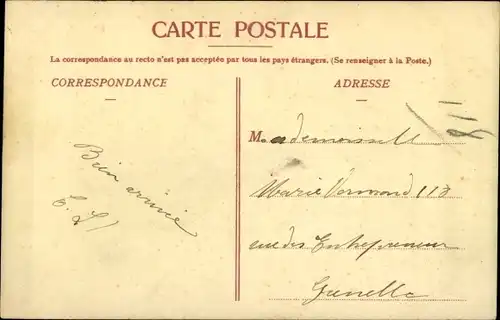 CARTE POSTALE
La correspondance au recto n'est pas acceptée par tous les pays étrangers. (Se renseigner à la Poste.)
CORRESPONDANCE
ADRESSE
Bien arrivée
E. L.
Mademoiselle
Marie Normand 118
rue des Entrepreneur
Grenelle
118